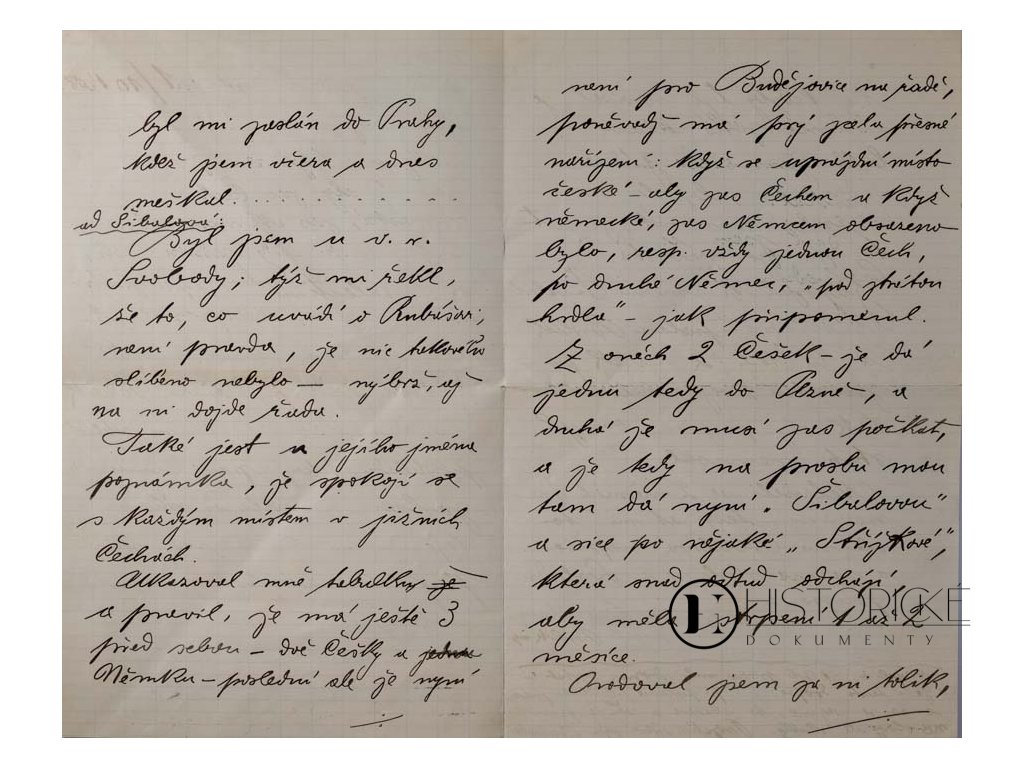 byl mi zaslán do Prahy,
kdež jsem včera a dnes
meškal. . . . . . . . . . . .
ad Šibalová:
Byl jsem u v. r.
Svobody; týž mi řekl,
že to, co uvádí o Rubášovi,
není pravda, že nic takového
slíbeno nebylo — nýbrž, až
na ni dojde řada.
Také jest u jejího jména
poznámka, že spokojí se
s každým místem v jižních
Čechách.
Ukazoval mně tabulku
a pravil, že má ještě 3
před sebou – dvě Češky a
Němku – poslední ale je nyní
není pro Budějovice na řadě,
poněvadž má prý zcela přesné
nařízení: když se uprázdní místo
české – aby zas Čechem a když
německé, zas Němcem obsazeno
bylo, resp. vždy jednou Čech,
po druhé Němec, „pod ztrátou
hrdla" – jak připomenul.
Z oněch 2 Češek – je dá
jednu tedy do Plzně, a
druhá že musí zas počkat,
a že tedy na prosbu mou
tam dá nyní „Šibalovou"
a sice po nějaké „Strýjkové",
která snad odtud odchází
aby měla strpení 1 až 2
měsíce.
Orodoval jsem za ni tolik,
HISTORICKÉ
DOKUMENTY